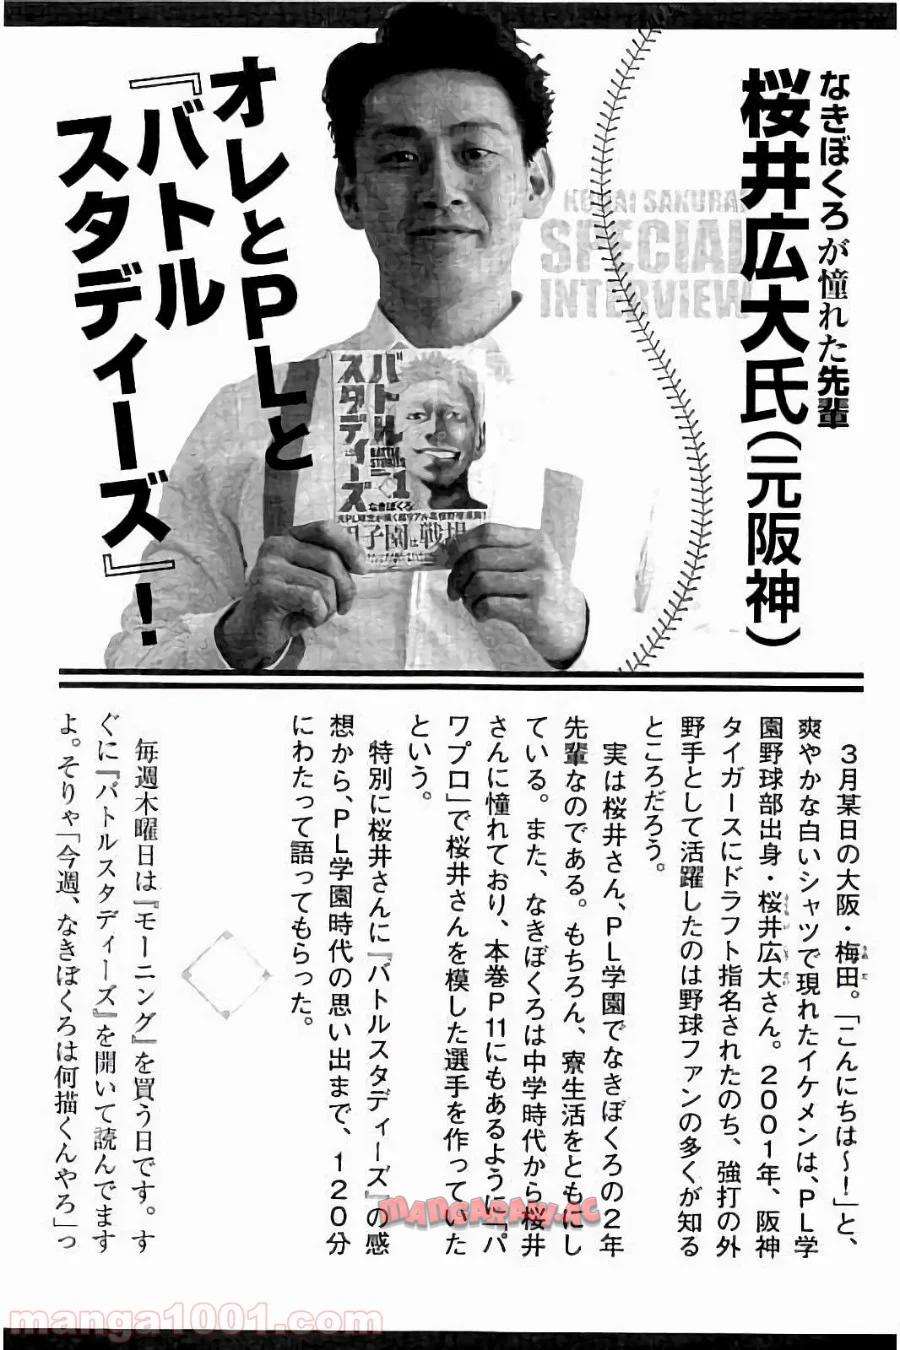 なきぼくろが憧れた先輩
桜井広大氏（元阪神）
KODAI SAKURAI
SPECIAL
INTERVIEW
オレとPLと
『バトル
スタディーズ』！
バトル
スタディーズ
BATTLE STUDIES
1
なきぼくろ
甲子園は戦場
３月某日の大阪・梅田。「こんにちは～！」と、
爽やかな白いシャツで現れたイケメンは、ＰＬ学
園野球部出身・桜井広大さん。２００１年、阪神
タイガースにドラフト指名されたのち、強打の外
野手として活躍したのは野球ファンの多くが知る
ところだろう。
実は桜井さん、ＰＬ学園でなきぼくろの２年
先輩なのである。もちろん、寮生活をともにし
ている。また、なきぼくろは中学時代から桜井
さんに憧れており、本巻Ｐ11にもあるように「パ
ワプロ」で桜井さんを模した選手を作っていた
という。
特別に桜井さんに『バトルスタディーズ』の感
想から、ＰＬ学園時代の思い出まで、１２０分
にわたって語ってもらった。
毎週木曜日は『モーニング』を買う日です。す
ぐに『バトルスタディーズ』を開いて読んでます
よ。そりゃ「今週、なきぼくろは何描くんやろ」っ
MANGARAW.AC
manga1001.com